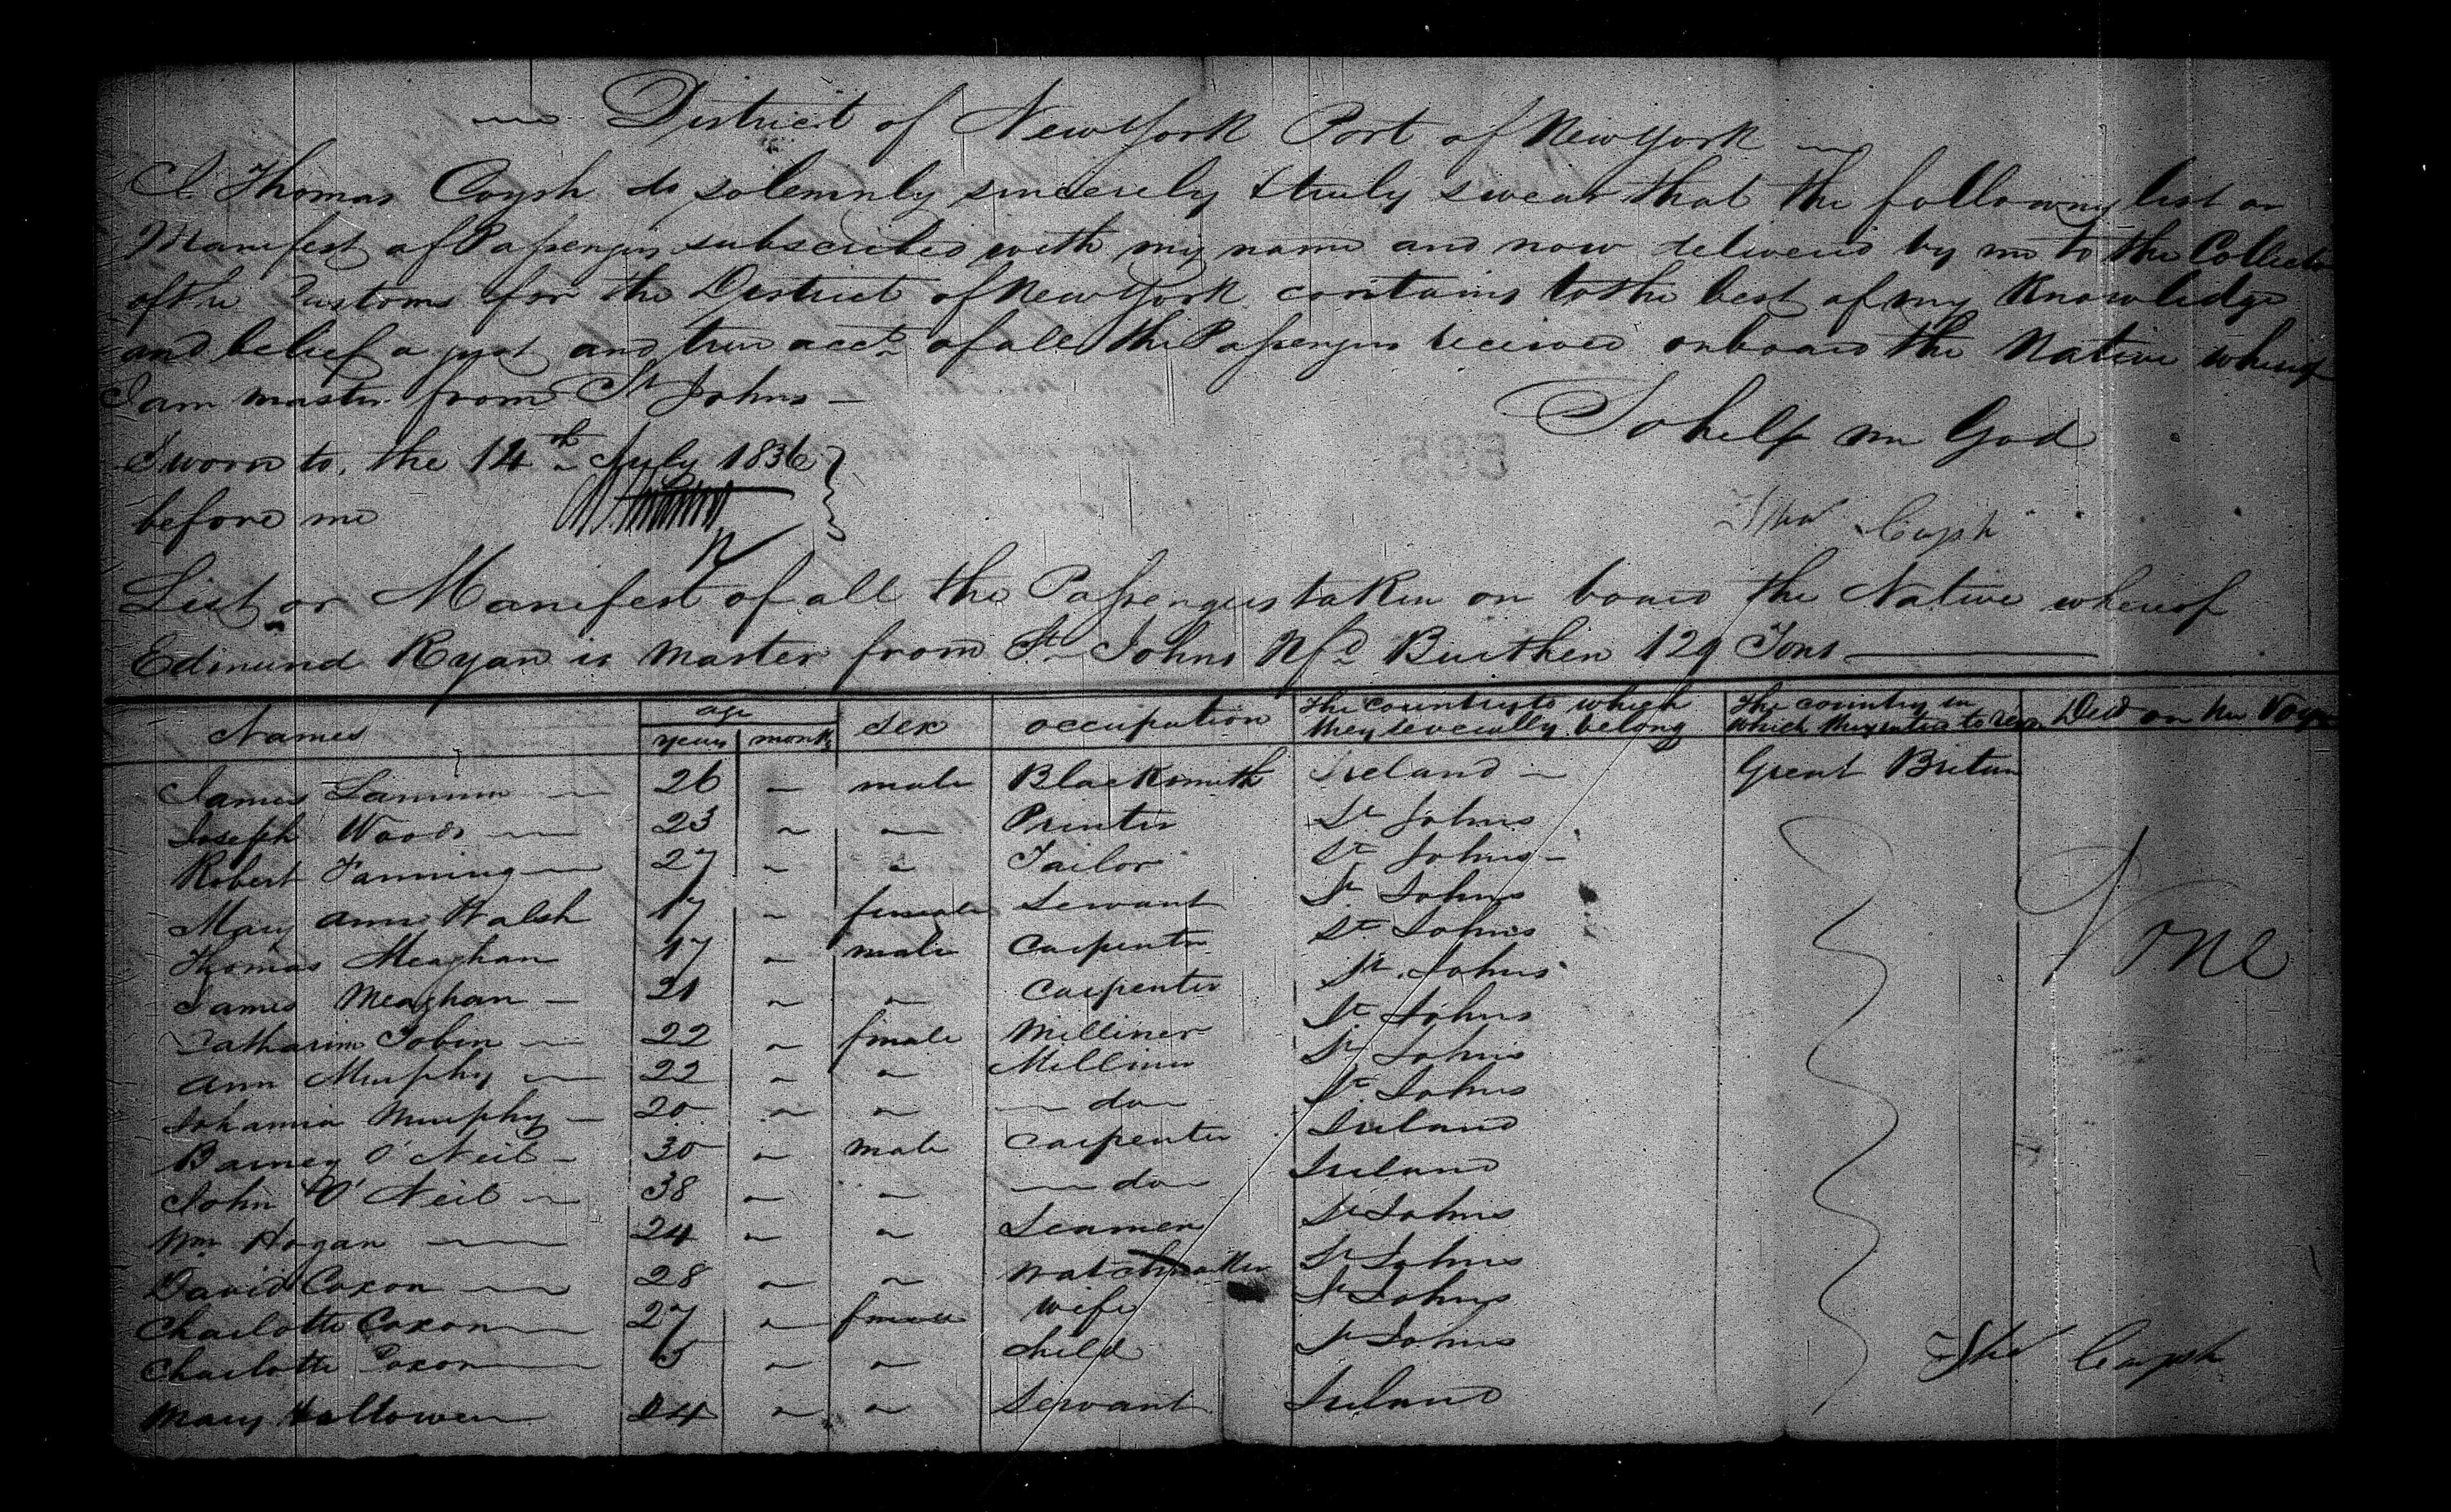 District of New York Port of New York
I Thomas Coysh do solemnly sincerely & truly swear that the following list or
Manifest of Passengers subscribed with my name and now delivered by me to the Collector
of the Customs for the District of New York contains to the best of my Knowledge
and belief a just and true acct of all the Passengers received onboard the Native whereof
I am master from St Johns
So help me God
Sworn to, the 14th July 1836
before me
Thos Coysh
List or Manifest of all the Passengers taken on board the Native whereof
Edmund Ryan is Master from St Johns Nfd Burthen 129 Tons
Names age years month sex occupation The country to which they severally belong The country in which they intend to Died on the Voy
James 26 - male Blacksmith Ireland Great Britain
Joseph Woods 23 " " Printer St Johns
Robert Fanning 27 " " Tailor St Johns
Mary Ann Walsh 17 " female Servant St Johns
Thomas Meaghan 17 " male Carpenter St Johns
None
James Meaghan 21 " " Carpenter St Johns
Catharine Tobin 22 " female Milliner St Johns
Ann Murphy 22 " " Milliner St Johns
Johanna Murphy 20 " " do St Johns
Barney O'Neil 30 " male Carpenter Ireland
John O'Neil 38 " " do Ireland
Wm Hogan 24 " " Seamen St Johns
David Coxon 28 " " Watchmaker St Johns
Charlotte Coxon 27 " female wife St Johns
Charlotte Coxon " " child St Johns
Thos Coysh
Mary Hallowen 24 " " Servant Ireland